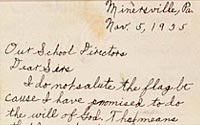 Minersville, Pa.
Nov. 5, 1935
Our School Directors
Dear Sirs
I do not salute the flag be
cause I have promised to do
the will of God. That means